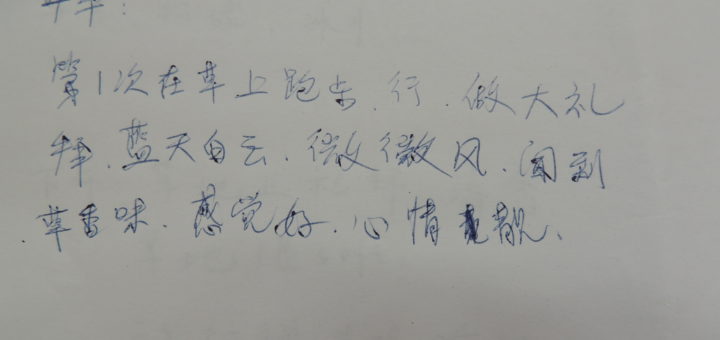 第1次在草上跑步、行、做大礼
拜、蓝天白云、微微微风、闻到
草香味、感觉好、心情